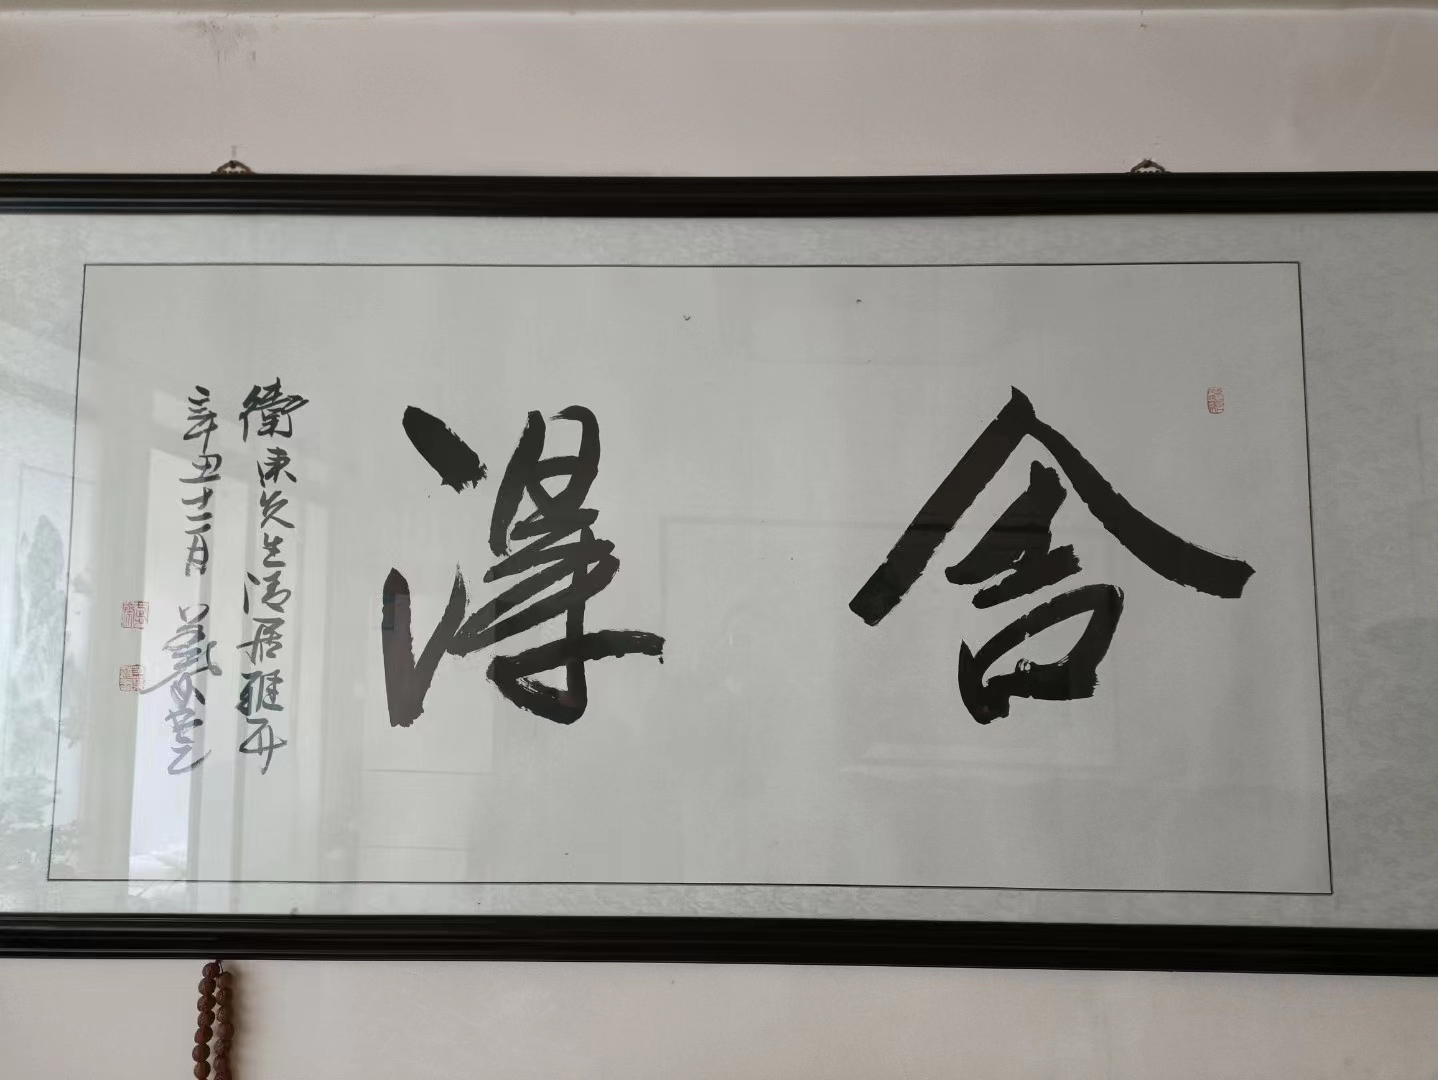 舍得
衛東先生清居雅正
辛丑十二月